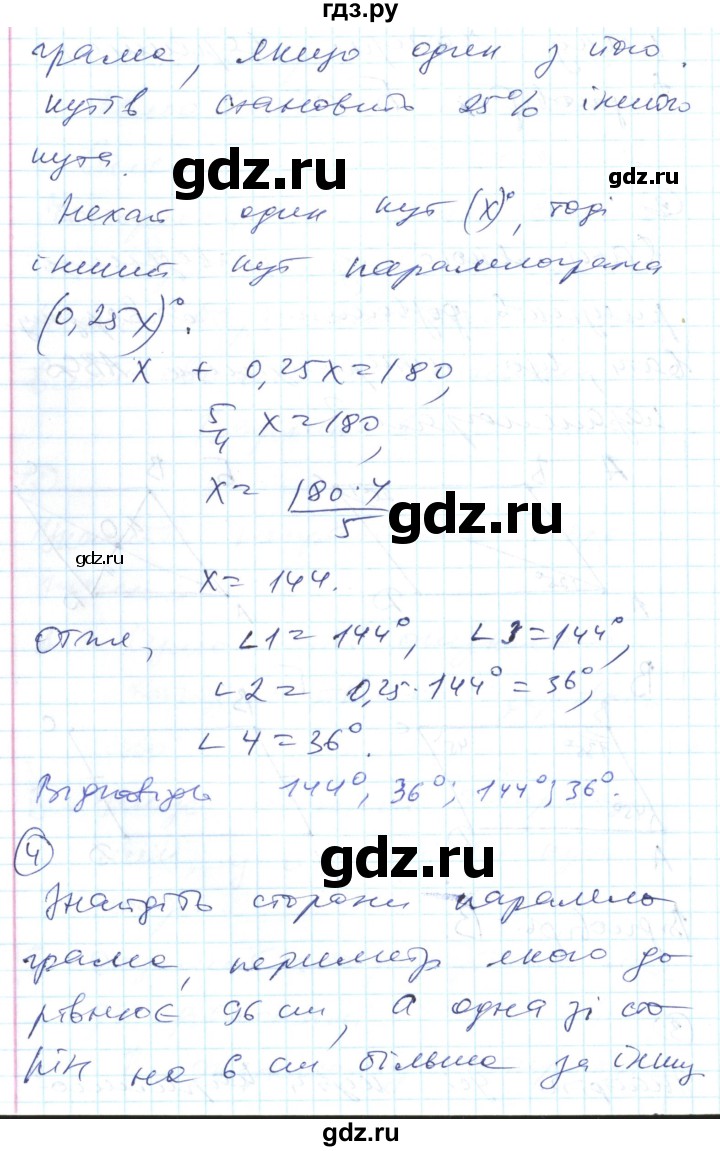 гдз.ру
грама, якщо один з його
кутів становить 25% іншого
кута.
gdz.ru
gdz.ru
Нехай один кут (x)°, тоді
інший кут паралелограма
(0,25x)°.
x + 0,25x = 180,
5/4 x = 180,
x = 180·4/5
gdz.ru
gdz.ru
x = 144.
Отже, ∠1 = 144°, ∠3 = 144°,
∠2 = 0,25·144° = 36°,
∠4 = 36°.
Відповідь 144°; 36°; 144°; 36°.
4
gdz.ru
Знайдіть сторони парало
грама, периметр якого до
рівнює 96 см, а одна зі сто
рін на 6 см більша за іншу
gdz.ru